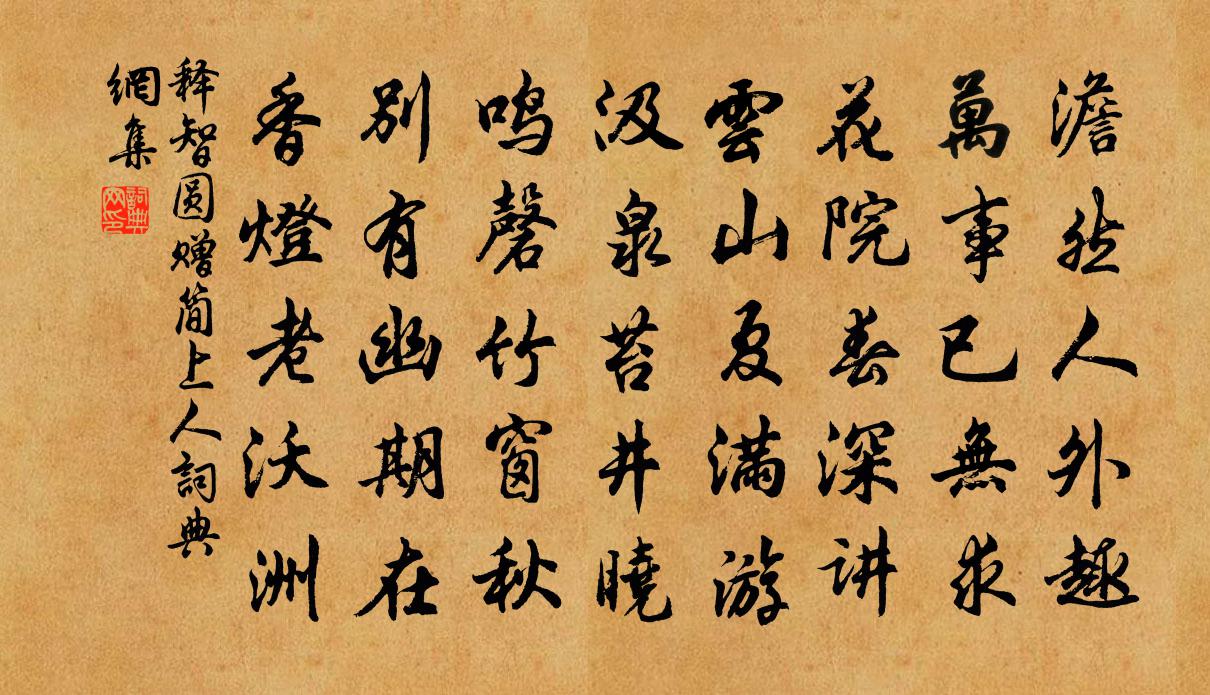 澹然人外趣
萬事已無求
花院春深讲
雲山夏满游
汲泉苔井曉
鸣磬竹窗秋
别有幽期在
香燈老沃洲
释智圆赠简上人詞典
網集
詞典
网印